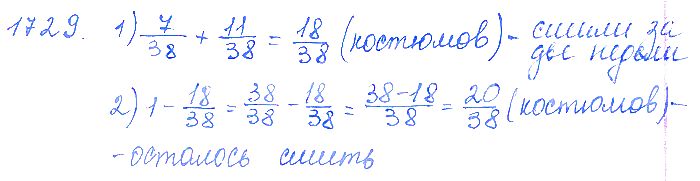 1729. 1) 7/38 + 11/38 = 18/38 (костюмов) - сшили за
две недели
2) 1 - 18/38 = 38/38 - 18/38 = 38-18/38 = 20/38 (костюмов) -
- осталось сшить